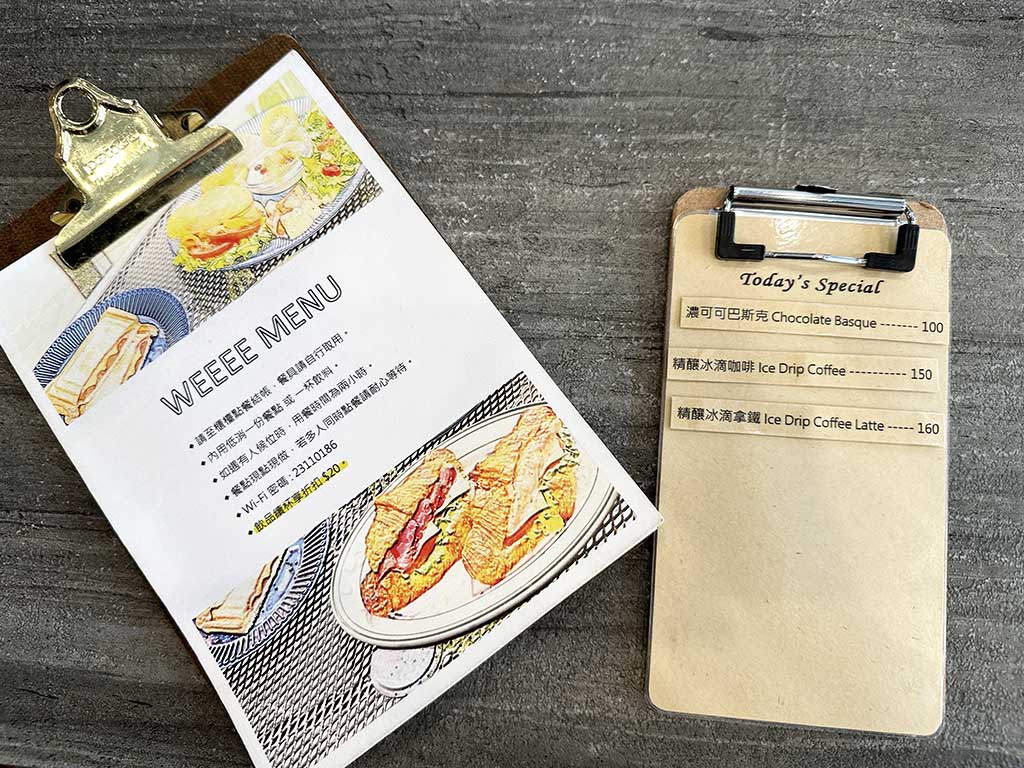 WEEEE MENU
◆ 請至櫃檯點餐結帳，餐具請自行取用。
◆ 內用低消一份餐點 或 一杯飲料。
◆ 如遇有人候位時，用餐時間為兩小時。
◆ 餐點現點現做，若多人同時點餐請耐心等待。
◆ Wi-Fi 密碼：23110186
◆ 飲品續杯享折扣 $20。
Today's Special
濃可可巴斯克 Chocolate Basque ------- 100
精釀冰滴咖啡 Ice Drip Coffee ----------- 150
精釀冰滴拿鐵 Ice Drip Coffee Latte ----- 160